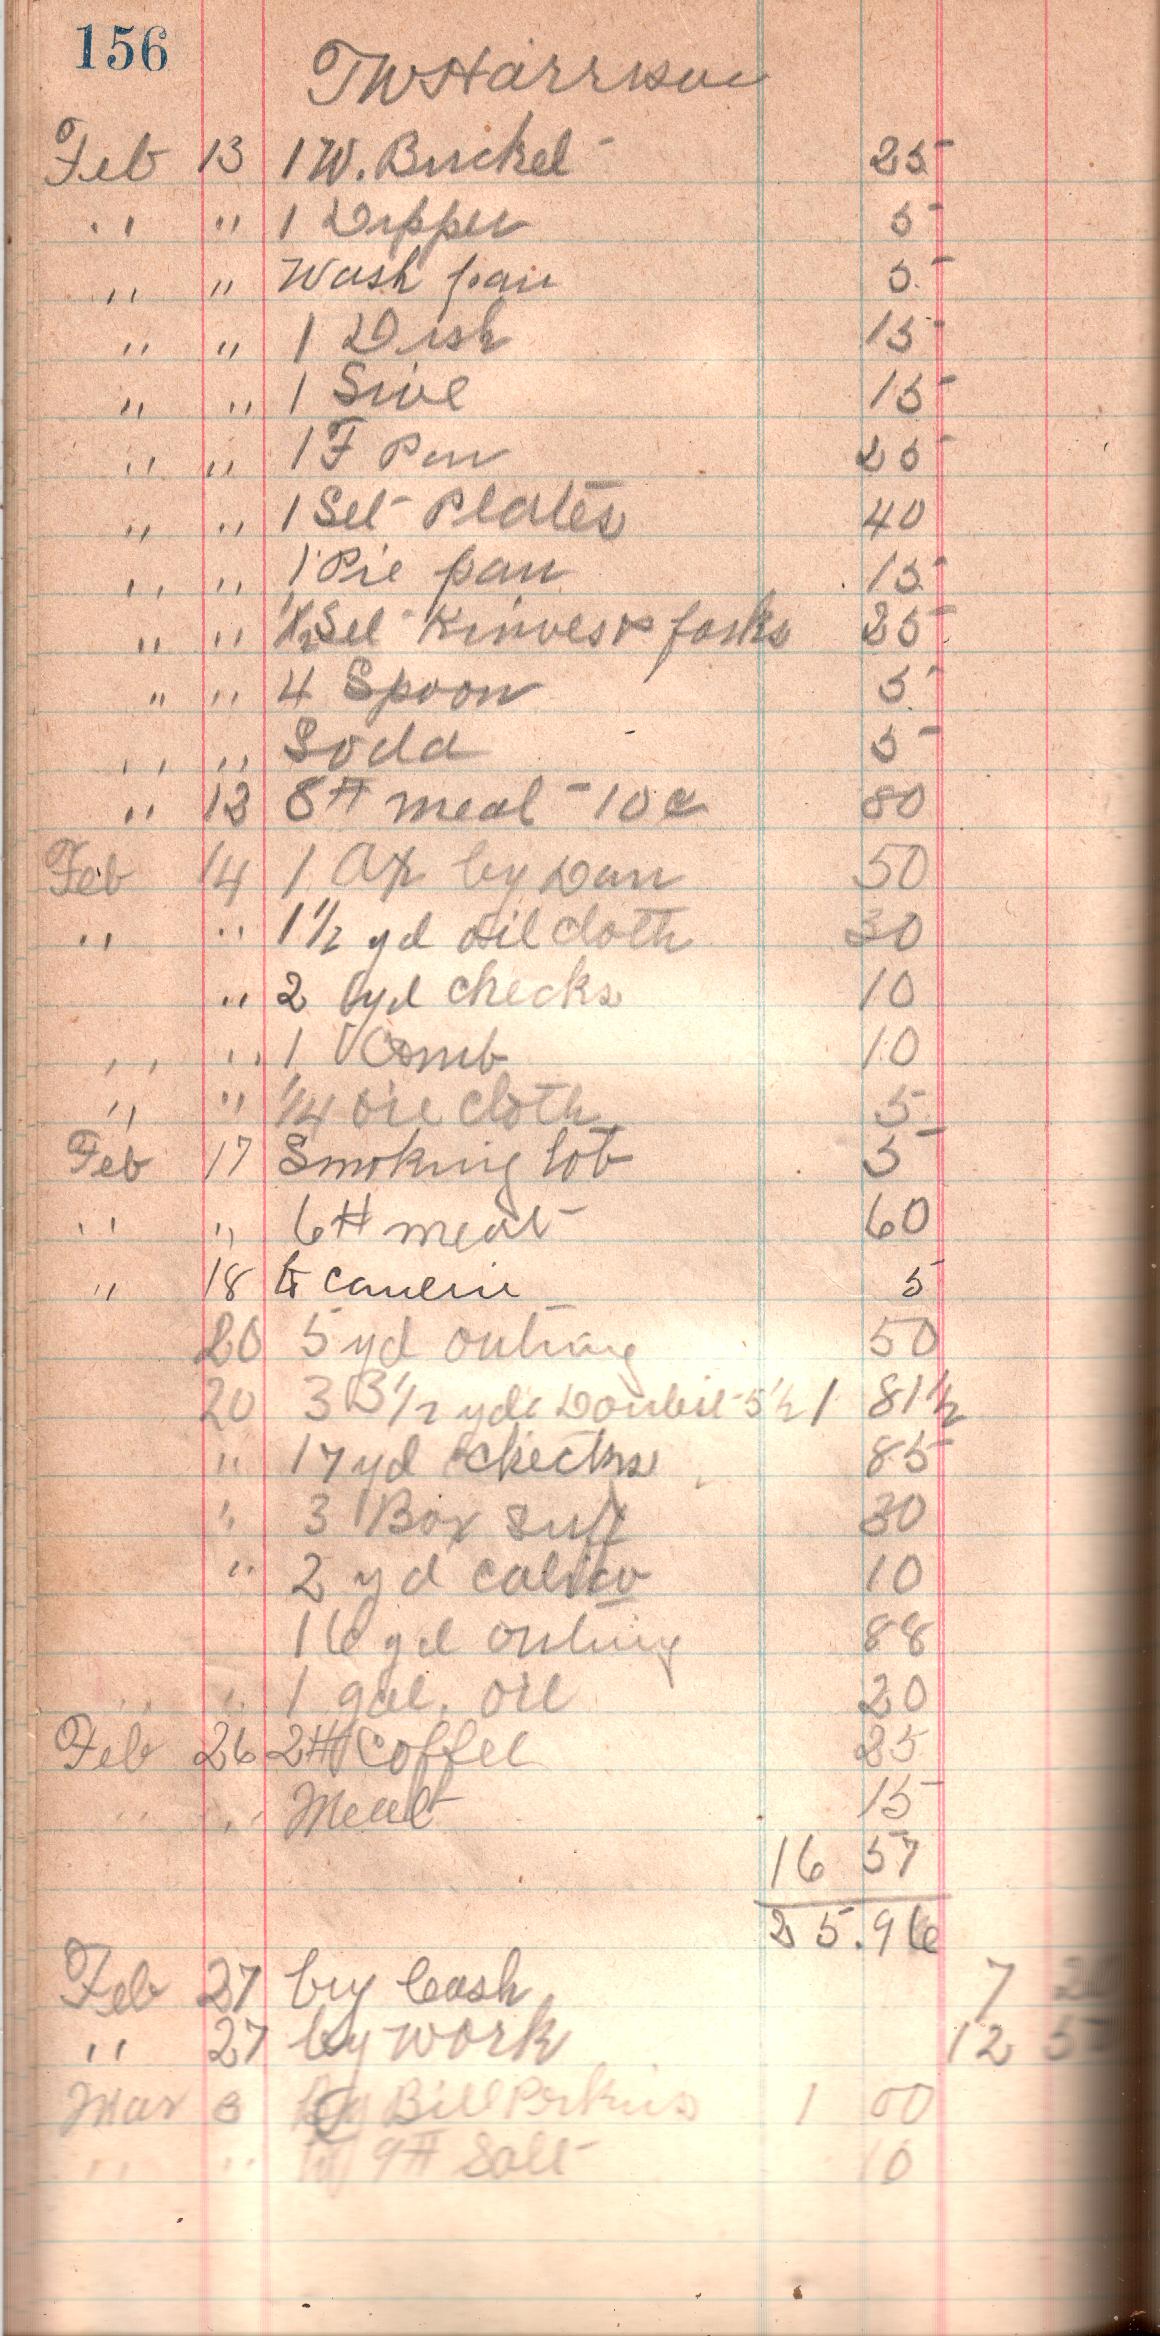 156
TW Harrison
Feb 13 1 W. Bucket 25
" " 1 Dipper 5
" " Wash pan 5
" " 1 Dish 15
" " 1 Sive 15
" " 1 F Pan 25
" " 1 Set Plates 40
" " 1 Pie pan 15
" " 1/2 Set Kinves & forks 25
" " 4 Spoon 5
" " Soda 5
" 13 8# meat - 10c 80
Feb 14 1 Ax by Dan 50
" " 1 1/2 yd oil cloth 30
" 2 yd checks 10
" " 1 Comb 10
" " 1/4 oil cloth 5
Feb 17 Smoking tob 5
" " 6# meat 60
" 18 5
20 5 yd outing 50
20 3 3 1/2 yds 5 1/2 1 81 1/2
" 17 yd checks 85
" 3 Box suff 30
" 2 yd calico 10
16 yd outing 88
" " 1 gal. oil 20
Feb 26 2# Coffee 25
" " Meat 15
16 57
25.96
Feb 27 by Cash 7
" 27 by work 12
Mar 8 by Bill Perkins 1 00
" " 9# Salt 10